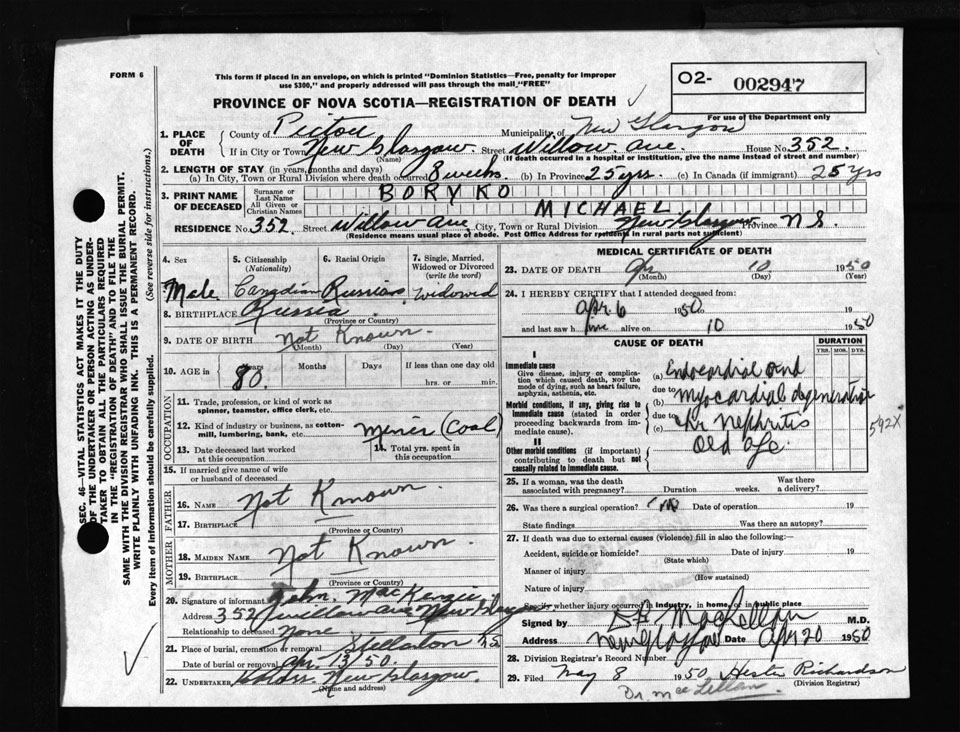 FORM 6
This form if placed in an envelope, on which is printed "Dominion Statistics—Free, penalty for improper
use $300," and properly addressed will pass through the mail "FREE"
O2- 002947
For use of the Department only
PROVINCE OF NOVA SCOTIA—REGISTRATION OF DEATH
1. PLACE OF DEATH
County of Pictou Municipality of New Glasgow
If in City or Town New Glasgow. Street Willow Ave. House No. 352.
(Name) (If death occurred in a hospital or institution, give the name instead of street and number)
2. LENGTH OF STAY (in years, months and days)
(a) In City, Town or Rural Division where death occurred 8 weeks. (b) In Province 25 yrs. (c) In Canada (if immigrant) 25 yrs
3. PRINT NAME OF DECEASED
Surname or Last Name BORYKO
All Given or Christian Names MICHAEL
RESIDENCE No. 352. Street Willow Ave. City, Town or Rural Division New Glasgow Province N S.
(Residence means usual place of abode. Post Office Address for residents in rural parts not sufficient)
4. Sex
Male
5. Citizenship (Nationality)
Canadian
6. Racial Origin
Russian
7. Single, Married, Widowed or Divorced (write the word)
widowed
8. BIRTHPLACE Russia
(Province or Country)
9. DATE OF BIRTH Not Known.
(Month) (Day) (Year)
10. AGE in Years Months Days If less than one day old
80. hrs. or min.
OCCUPATION
11. Trade, profession, or kind of work as spinner, teamster, office clerk, etc.
12. Kind of industry or business, as cotton-mill, lumbering, bank, etc. Miner (Coal)
13. Date deceased last worked at this occupation
14. Total yrs. spent in this occupation
15. If married give name of wife or husband of deceased
FATHER
16. Name Not Known.
17. Birthplace
(Province or Country)
MOTHER
18. Maiden Name Not Known.
19. Birthplace
(Province or Country)
20. Signature of informant John MacKenzie
Address 352 Willow Ave New Glasgow
Relationship to deceased None
21. Place of burial, cremation or removal Stellarton N.S.
Date of burial or removal Apr. 13 50.
22. Undertaker New Glasgow.
(Name and address)
MEDICAL CERTIFICATE OF DEATH
23. DATE OF DEATH 10 1950
(Month) (Day) (Year)
24. I HEREBY CERTIFY that I attended deceased from
Apr. 6 1950 to 19
and last saw him alive on 10 1950
CAUSE OF DEATH
DURATION
YRS. MOS. DYS.
I
Immediate cause
Give disease, injury or complication which caused death, NOT the mode of dying, such as heart failure, asphyxia, asthenia, etc.
(a) Endocardial and
due to
(b) myocardial degeneration
Morbid conditions, if any, giving rise to immediate cause (stated in order proceeding backwards from immediate cause).
due to
(c) Chr Nephritis 592X
II
Other morbid conditions (if important) contributing to death but not causally related to immediate cause.
Old age
25. If a woman, was the death associated with pregnancy? Duration weeks. Was there a delivery?
26. Was there a surgical operation? no Date of operation 19
State findings Was there an autopsy?
27. If death was due to external causes (violence) fill in also the following:—
Accident, suicide or homicide? Date of injury 19
(State which)
Manner of injury
(How sustained)
Nature of injury
Specify whether injury occurred in industry, in home, or in public place
Signed by MacLellan M.D.
Address New Glasgow Date 20 1950
28. Division Registrar's Record Number
29. Filed May 8 1950 Hester Richardson
(Division Registrar)
Dr. MacLellan.
SEC. 46—VITAL STATISTICS ACT MAKES IT THE DUTY
OF THE UNDERTAKER OR PERSON ACTING AS UNDER-
TAKER TO OBTAIN ALL THE PARTICULARS REQUIRED
IN THE "REGISTRATION OF DEATH" AND TO FILE THE
SAME WITH THE DIVISION REGISTRAR WHO SHALL ISSUE THE BURIAL PERMIT.
WRITE PLAINLY WITH UNFADING INK. THIS IS A PERMANENT RECORD.
Every item of information should be carefully supplied. (See reverse side for instructions.)